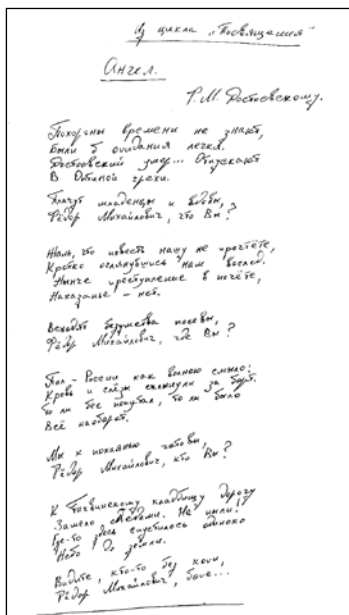 Из цикла „Посвящения"
Ангел.
Ф.М. Достоевскому.
Похороны времени не знают,
Были б ожидания легки.
Достоевский умер... Отпускают
В Оптиной грехи.
Плачут младенцы и вдовы,
Фёдор Михайлович, что Вы?
Жаль, что повесть нашу не прочтёте,
Кротко оглянувшись нам вослед.
Нынче преступление в почёте,
Наказанье – нет.
Всходят безумства посевы,
Фёдор Михайлович, где Вы?
Пол-России как волною смыло:
Кровь и слёзы схлынули за борт.
То ли бес попутал, то ли было
Всё наоборот.
Мы к покаянью готовы,
Фёдор Михайлович, кто Вы?
К Тихвинскому кладбищу дорогу
Замело. Не
Где-то здесь спустилось одиноко
Небо до земли.
Видите, кто-то без
Фёдор Михайлович,